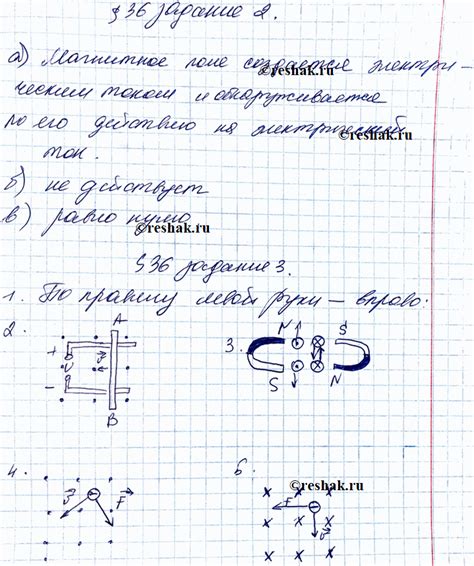 §36 задание 2.
а) Магнитное поле создается электри-
ческим током и обнаруживается
©reshak.ru
по его действию на электрический
ток.
б) не действует
в) равно нулю
©reshak.ru
§36 задание 3.
1. По правилу левой руки – вправо.
2. A
+
–
B
3. N S
S N
©reshak.ru
4. F
6. ©reshak.ru
F